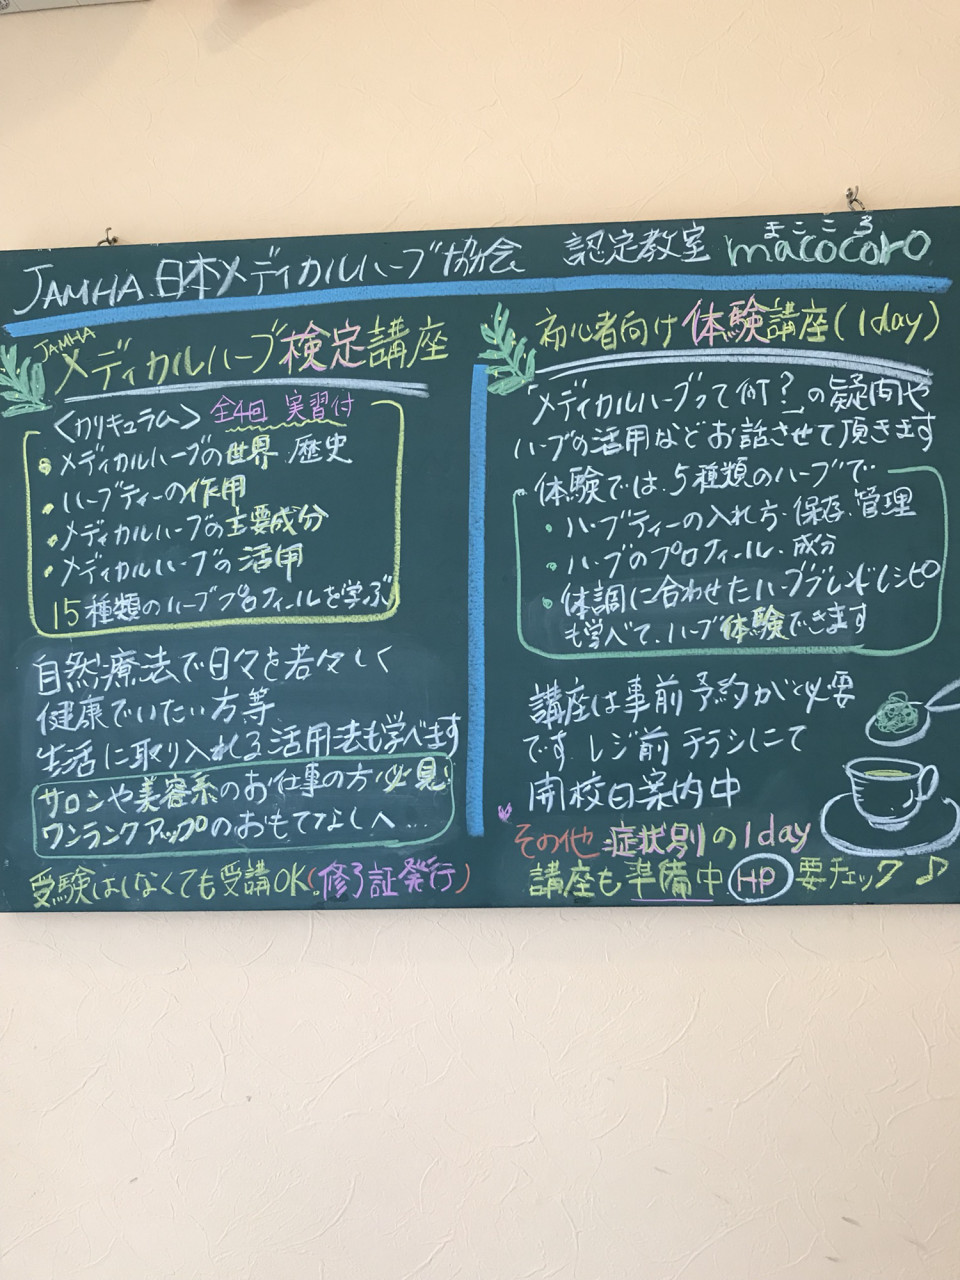 JAMHA 日本メディカルハーブ協会 認定教室 macocoro
まこころ
JAMHA
メディカルハーブ検定講座
<カリキュラム> 全4回 実習付
・メディカルハーブの世界 歴史
・ハーブティーの作用
・メディカルハーブの主要成分
・メディカルハーブの活用
15種類のハーブプロフィールを学ぶ
自然療法で日々を若々しく
健康でいたい方等
生活に取り入れる活用法も学べます
サロンや美容系のお仕事の方必見!
ワンランクアップのおもてなしへ...
受験はしなくても受講OK(修了証発行)
初心者向け 体験講座(1day)
「メディカルハーブって何?」の疑問や
ハーブの活用などお話させて頂きます
体験では、5種類のハーブで..
・ハーブティーの入れ方・保存、管理
・ハーブのプロフィール、成分
・体調に合わせたハーブブレンドレシピ
も学べて、ハーブ体験できます
講座は事前予約が必要
です。レジ前チラシにて
開校日案内中
その他 症状別の1day
講座も準備中 HP 要チェック♪